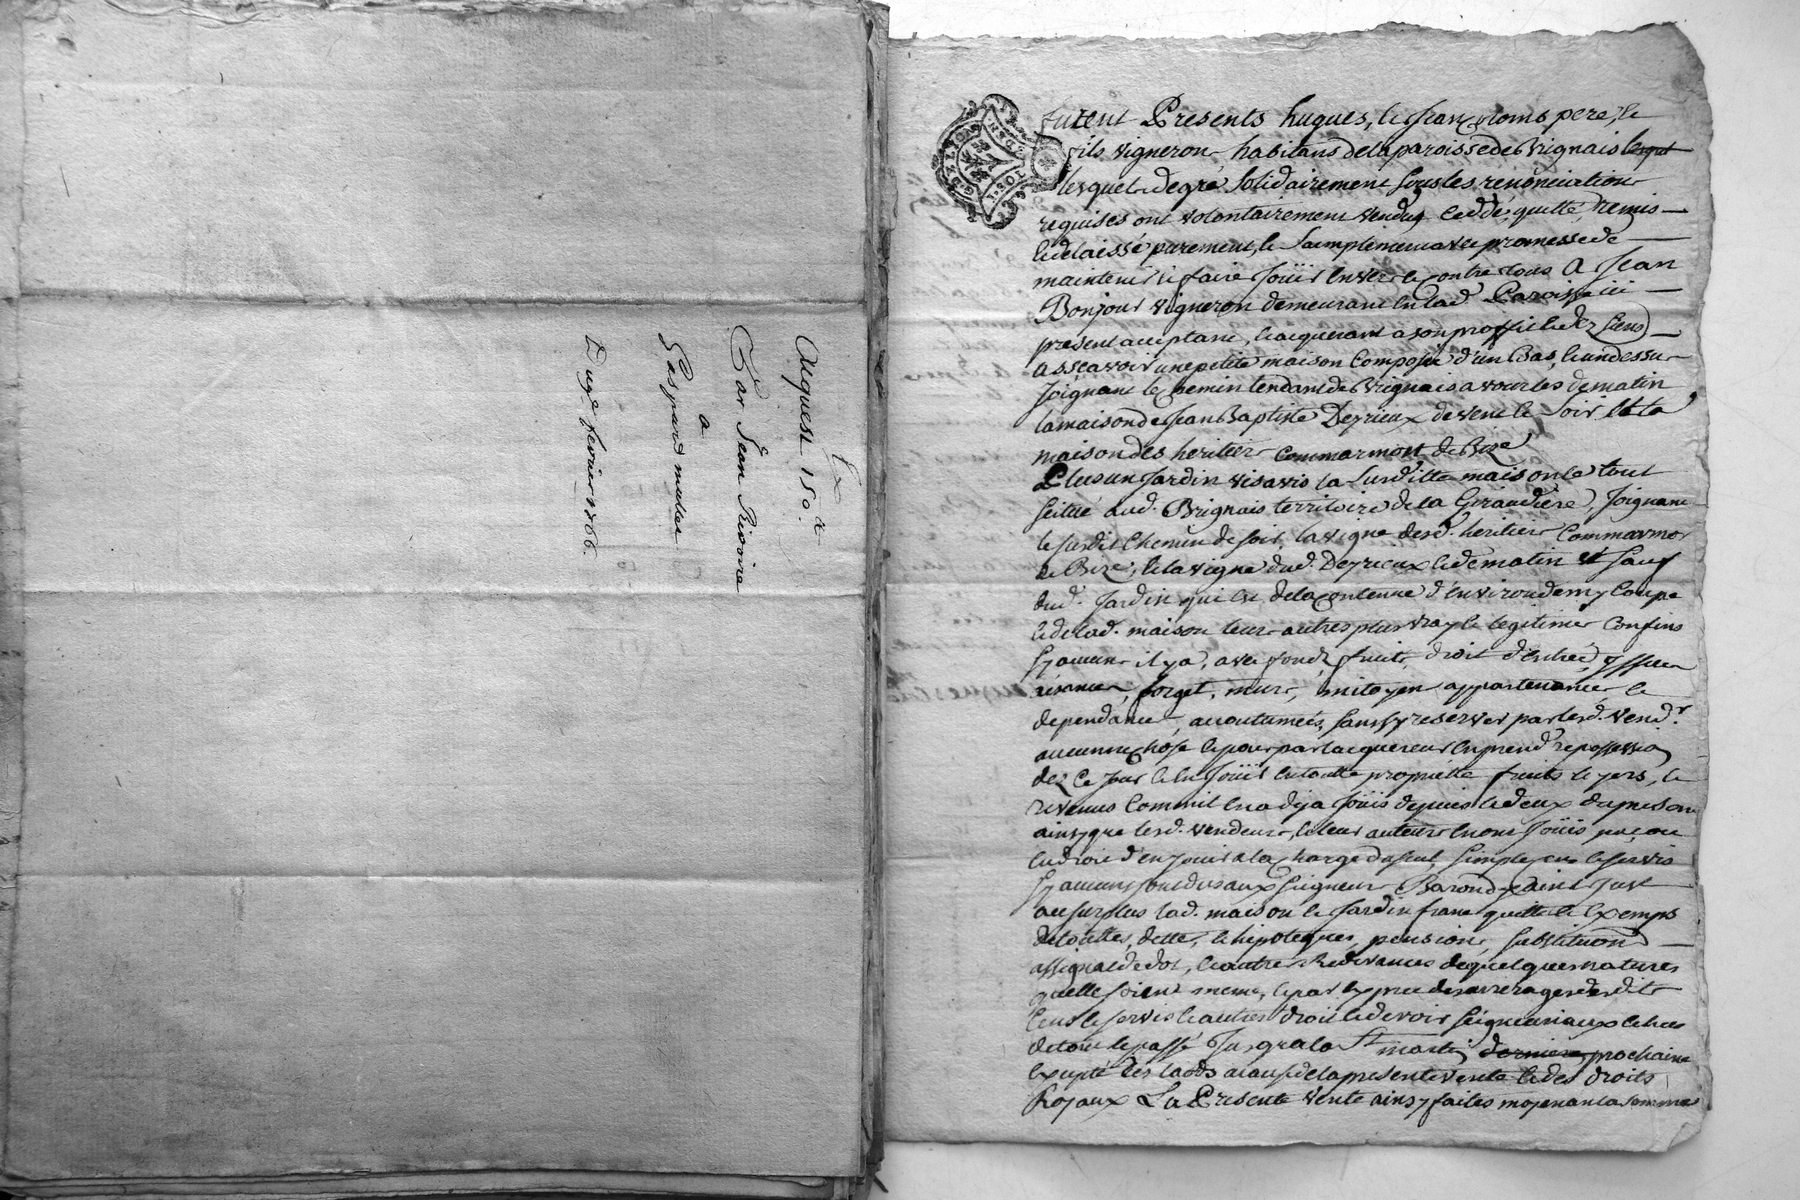 Ex
Aquest 150.#
Par Jean Rivoire
a
Gaspard mullet
Du 9.e fevrier 1766.
furent Presents hugues, & Jean noms pere, &
fils vigneron habitans de la paroisse de Brignais
lesquels de gré solidairement sous les renonciations
requises ont volontairement vendus ceddé, quitté, remis
& delaissé purement, & simplement avec promesse de
maintenir & faire Joüir envers & contre tous A Jean
Bonjour vigneron demeurant en lad. Paroisse ici
present acceptant, & acquerant a son proffit & des siens
asscavoir une petite maison Composée d'un Bas, & un dessus
Joignant le chemin tendant de Brignais a vourles de matin
la maison de Jean Baptiste Deyrieux de vent & soir & la
maison des heritiers Commarmont de Bize
Plus un Jardin vis a vis la susditte maison le tout
scitué aud. Brignais territoire de la Giraudiere, Joignant
le susdit chemin de soir, la vigne desd. heritiers Commarmo
de Bize, & la vigne dud. Deyrieux & de matin & sauf
dud. Jardin qui est de la contenue d'environ demy Coupe
& de lad. maison leurs autres plus vray & legitimes Confins
sy aucuns il y a, avec fonds, fruits, droit d'entrée, yssue
aisances, forget, murs, mitoyen appartenances &
dependances, accoutumées, sans s'y reserver par lesd. Vend.rs
aucune chose & pour par l'acquereur en prendre possession
dez ce Jour & en Joüir en toutte proprieté fruits & pers, &
revenus Comm'il en a deja Joüis depuis
ainsy que lesd. vendeurs, & leurs auteurs en ont Joüis, pu, ou
eu droit d'en Jouir a la charge d'aseul simple cens & servis
sy aucuns sont dus aux seigneurs Baron de Saint Just
au surplus lad. maison & Jardin franc quitte & exempts
de touttes, dettes, & hipoteques, pensions, substitution
assignat de dot, & autres Redevances de quelques natures
qu'elle soient meme, & par exprez des arrerages desdits
Cens & servis & autres droit & devoirs seigneuriaux
de tout le passé Jusqu'a la St martin derniere prochaine
Excepté les laods a cause de la presente vente & des droits
Royaux La Presente vente ainsy faites moyenant la somme